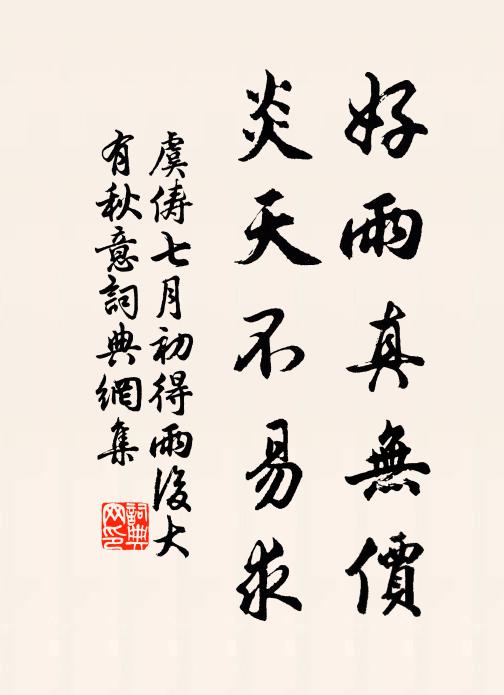 好雨真無價
炎天不易求
虞儔七月初得雨後大
有秋意詞典網集
詞典
网印